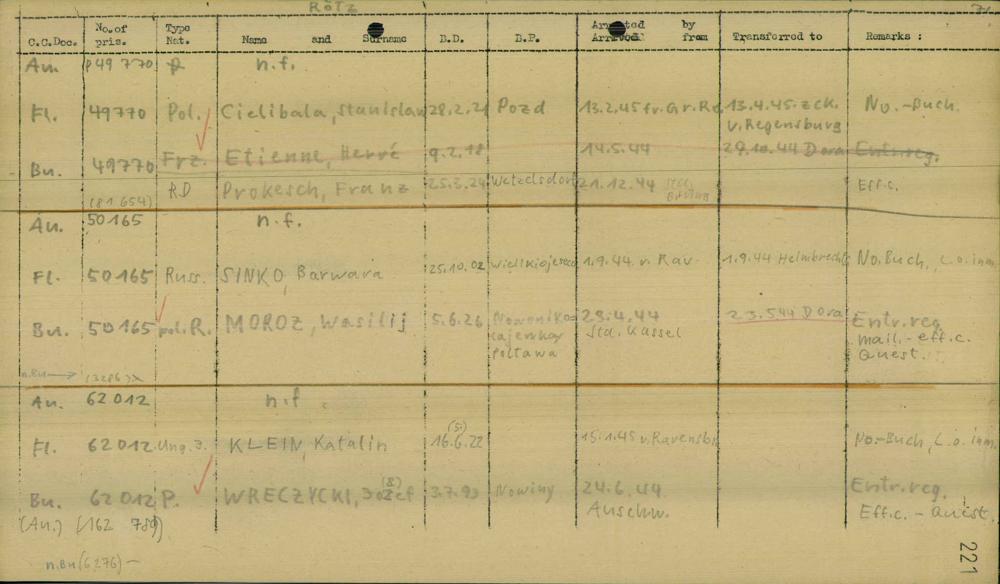 RÖTZ
C.C.Doc. No.of pris. Type Nat. Name and Surname B.D. B.P. Arrested by Arrived from Transferred to Remarks :
Au. 49 770 n.f.
Fl. 49770 Pol. Cielibala, Stanislaw 28.2.21 Pozd 13.2.45 fr. Gr. Ro 13.4.45 z ck. v. Regensburg No.-Buch.
Bu. 49770 Frz. Etienne, Hervé 9.2.18 14.5.44 29.10.44 Dora Entr.reg.
(81 654) RD Prokesch, Franz 25.3.24 Wetzelsdorf 21.12.44 Eff.c.
Au. 50165 n.f.
Fl. 50165 Russ. SINKO, Barwara 25.10.02 1.9.44 v. Rav. 1.9.44 Helmbrechts No.Buch, L.o.inm.
Bu. 50165 pol.R. MOROZ, Wasilij 5.6.26 Nowoniko- 29.4.44 23.5.44 Dora Entr.reg.
lajewka Sta. Kassel mail.-eff.c.
Poltawa Quest.
n.Bu → (3286)x
Au. 62012 n.f.
Fl. 62012 Ung.J. KLEIN, Katalin 16.6.22 (5.) 15.1.45 v. Ravensb. No.-Buch, L.o.inm.
Bu. 62012 P. WRECZYCKI, Josef (8) 3.7.93 Nowiny 24.6.44 Entr.reg.
(Au.) (162 789) Auschw. Eff.c. - Quest.
n.Bu (6276) —
221